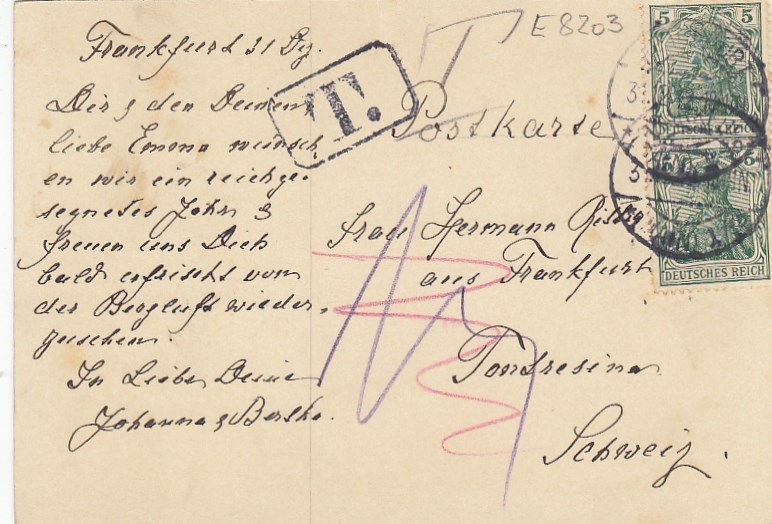 Frankfurt 31 Dz.
Dir & den Deinen
liebe Emma wünsch
en wir ein reichge-
segnetes Jahr &
freuen uns Dich
bald erfrischt von
der Bergluft wieder-
zusehen.
In Liebe Deine
Johanna & Bertha.
T.
E 8203
Postkarte
Frau Hermann
aus Frankfurt
Pondresina
Schweiz.
5 5
DEUTSCHES REICH
5 5
DEUTSCHES REICH